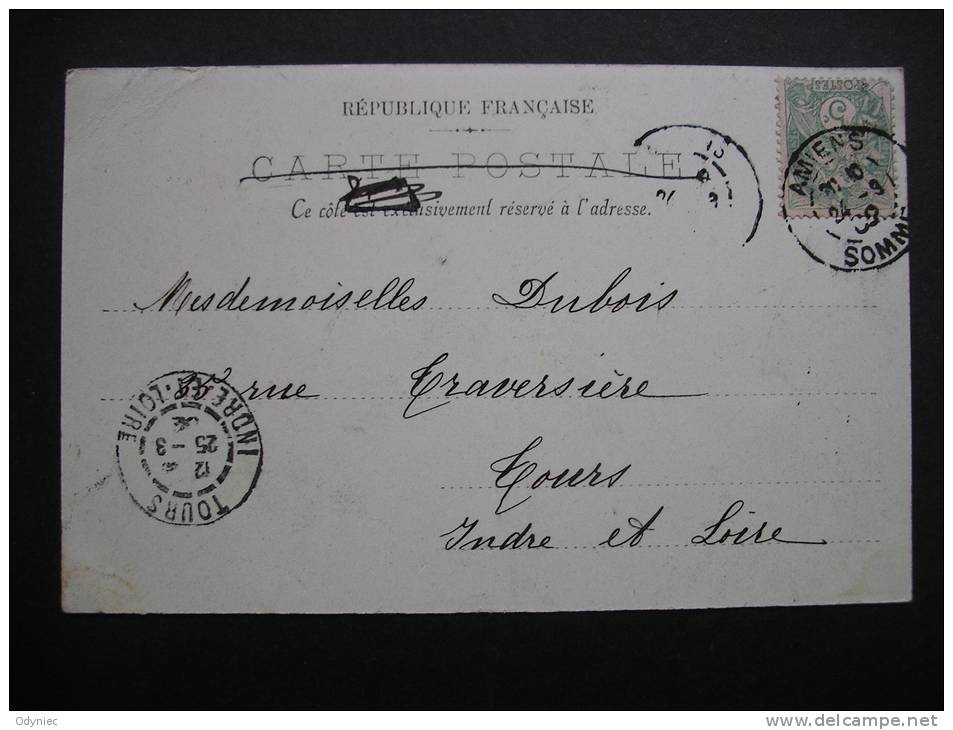 RÉPUBLIQUE FRANÇAISE
CARTE POSTALE
Ce côté est exclusivement réservé à l'adresse.
POSTES
5
AMIENS
SOMME
Mesdemoiselles Dubois
rue Traversière
Tours
Indre et Loire
TOURS
12
25 - 3
INDRE-ET-LOIRE
Odyniec
www.delcampe.net